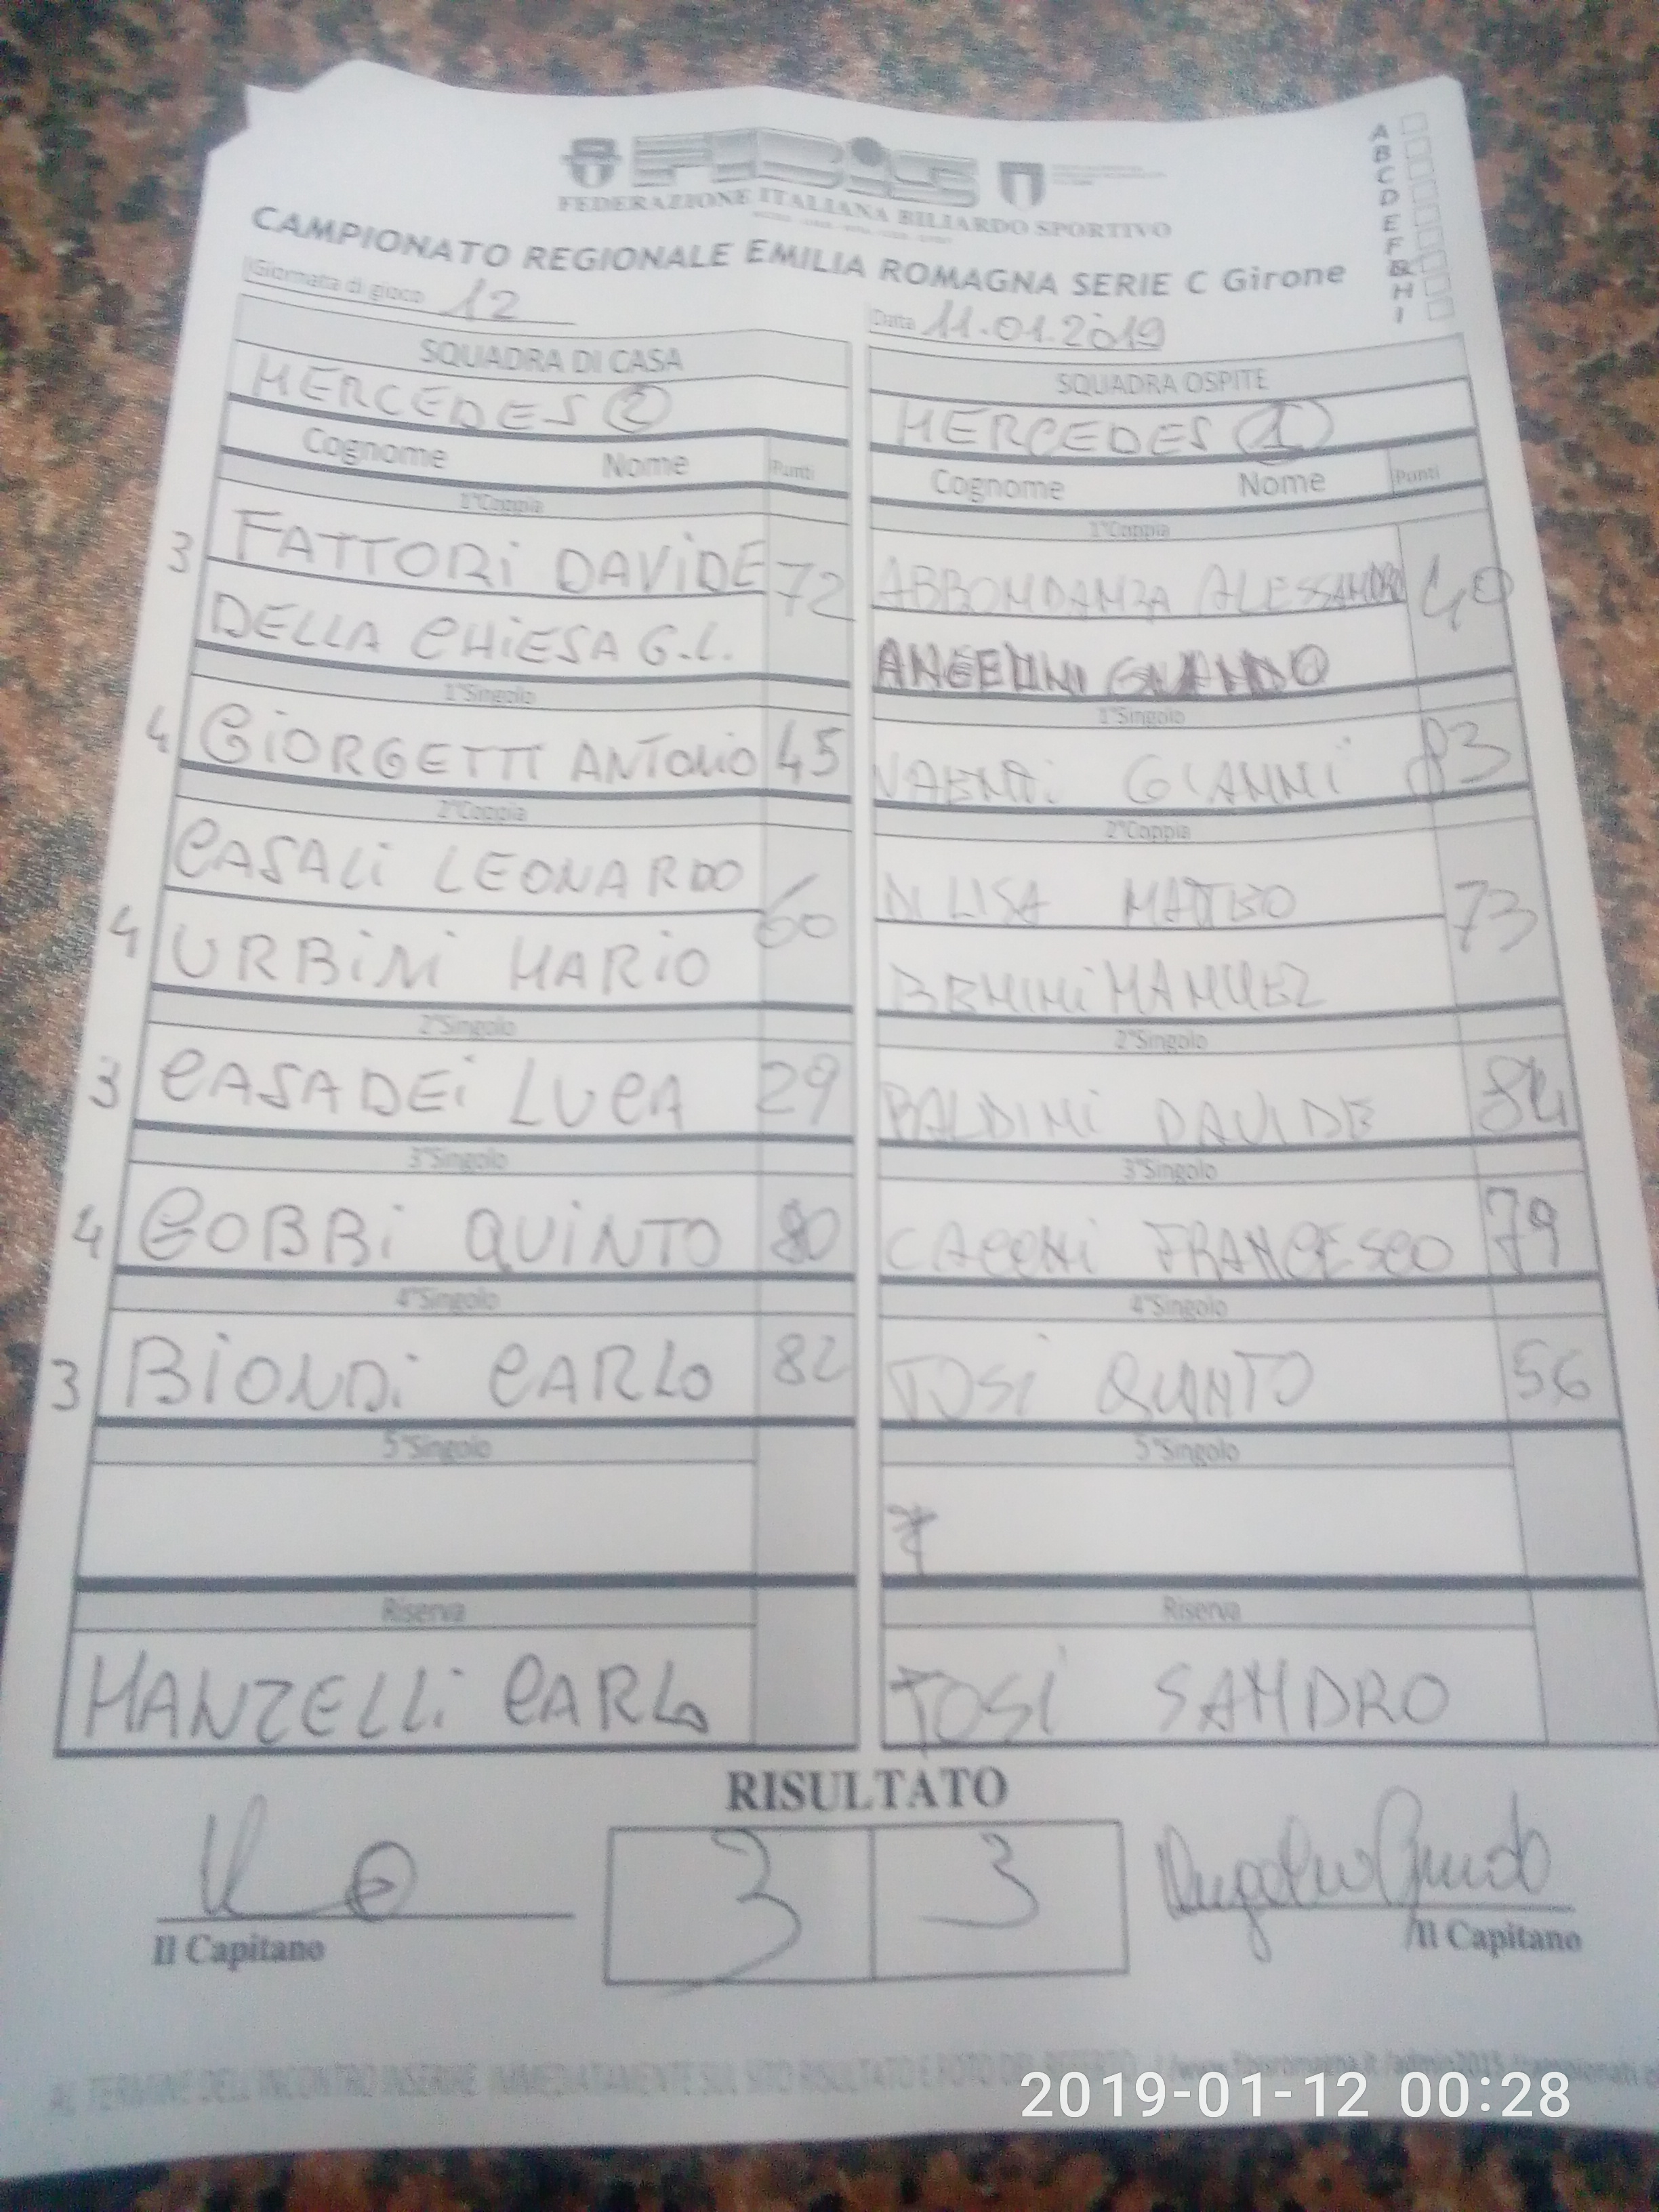 FIBiS
FEDERAZIONE ITALIANA BILIARDO SPORTIVO
CAMPIONATO REGIONALE EMILIA ROMAGNA SERIE C Girone
A
B
C
D
E
F
G
H
I
Giornata di gioco 12
Data 11.01.2019
SQUADRA DI CASA
MERCEDES 2
Cognome Nome Punti
1°Coppia
3 FATTORI DAVIDE 72
DELLA CHIESA G.L.
1°Singolo
4 GIORGETTI ANTONIO 45
2°Coppia
CASALI LEONARDO 60
4 URBINI MARIO
2°Singolo
3 CASADEI LUCA 29
3°Singolo
4 GOBBI QUINTO 80
4°Singolo
3 BIONDI CARLO 82
5°Singolo
Riserva
MANZELLI CARLO
SQUADRA OSPITE
MERCEDES 1
Cognome Nome Punti
1°Coppia
ABBONDANZA ALESSANDRO 40
ANGELINI
1°Singolo
GIANNI 83
2°Coppia
DI LISA MATTEO 73
BENINI MANUEL
2°Singolo
BALDINI DAVIDE 84
3°Singolo
FRANCESCO 79
4°Singolo
TOSI QUINTO 56
5°Singolo
Riserva
TOSI SANDRO
RISULTATO
3 3
Il Capitano
Il Capitano
AL TERMINE DELL'INCONTRO INSERIRE IMMEDIATAMENTE SUL SITO RISULTATO E FOTO DEL REFERTO
2019-01-12 00:28